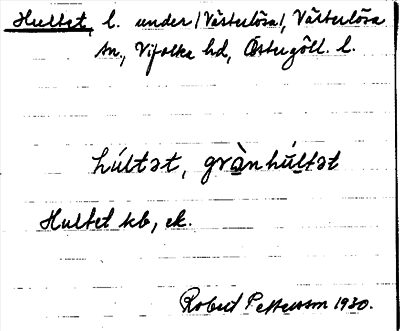 Hultet, l. under /Västerlösa/, Västerlösa
sn., Vifolka hd, Östergötl. l.
húltət, grànhúltət
Hultet kb, ek.
Robert Pettersson 1930.